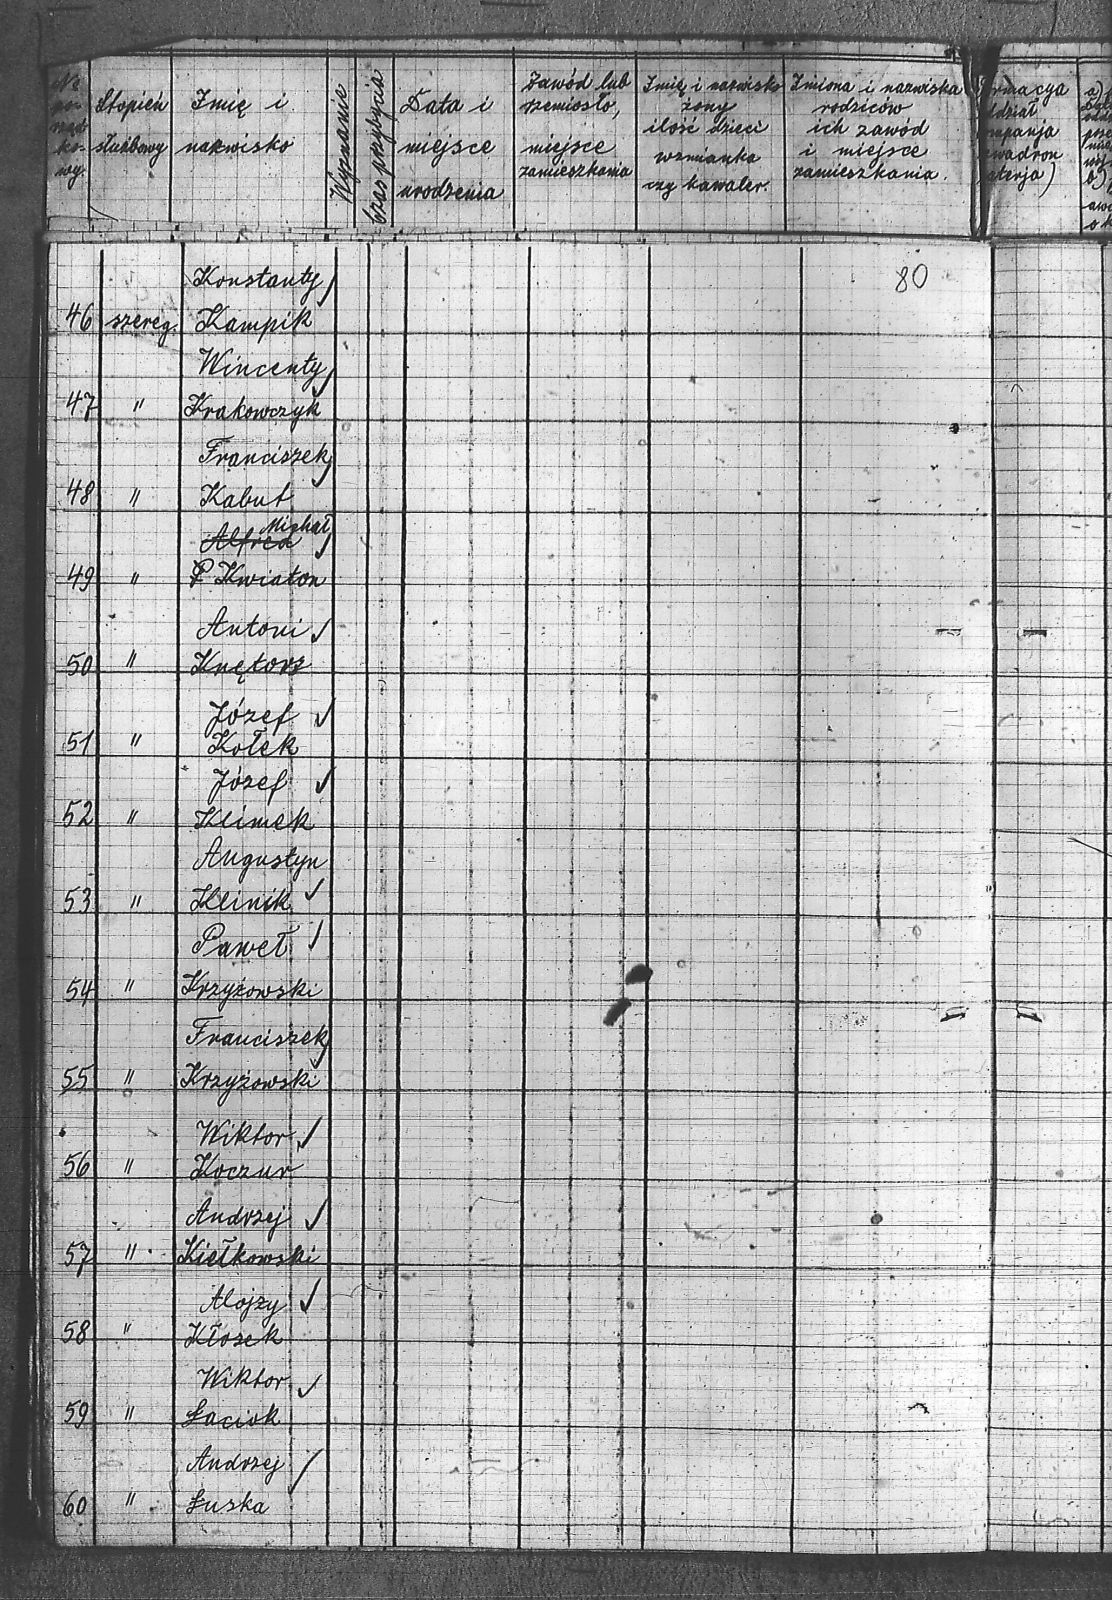 No porządkowy.
Stopień służbowy
Imię i nazwisko
Wyznanie
Czas przybycia
Data i miejsce urodzenia
Zawód lub rzemiosło, miejsce zamieszkania
Imię i nazwisko żony ilość dzieci wzmianka czy kawaler.
Imiona i nazwiska rodziców ich zawód i miejsce zamieszkania.
80
Konstanty
46 szereg. Kampik
Wincenty
47 " Krakowczyk
Franciszek
48 " Kabut
Michał
Alfred
49 " P Kwiaton
Antoni
50 " Knętorz
Józef
51 " Kołek
Józef
52 " Klimek
Augustyn
53 " Klinik
Paweł
54 " Krzyżowski
Franciszek
55 " Krzyżowski
Wiktor
56 " Koczur
Andrzej
57 " Kiełkowski
Alojzy
58 " Kłosek
Wiktor
59 " Łaciok
Andrzej
60 " Łuska